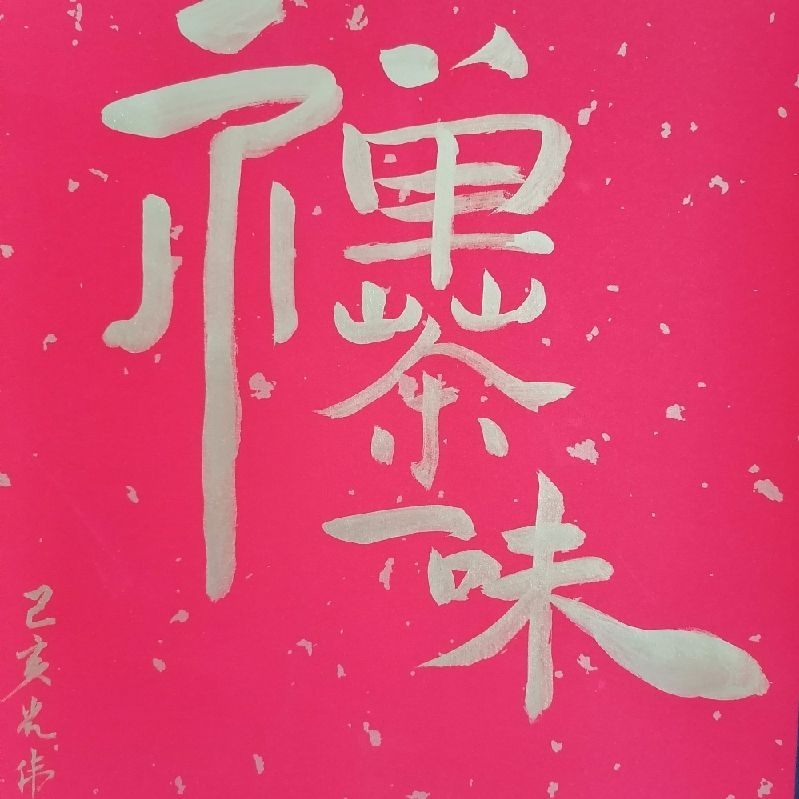 禪茶一味
己亥光伟